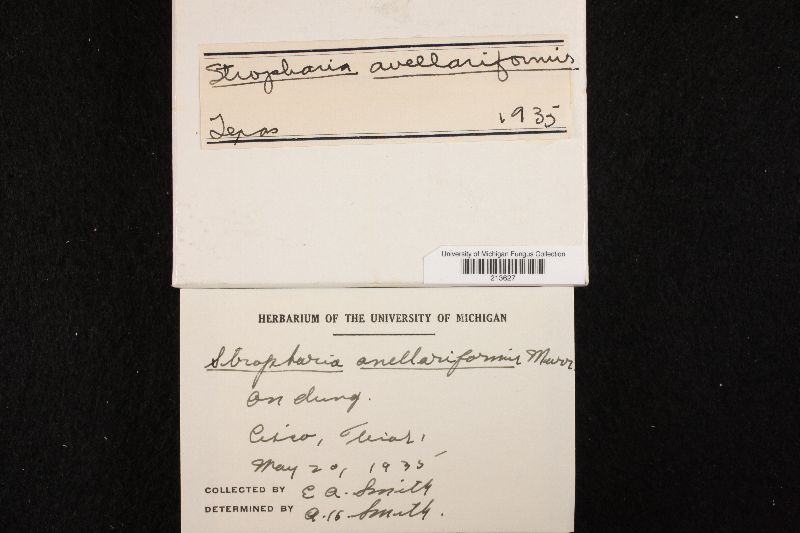 Stropharia avellariformis
Texas 1935
University of Michigan Fungus Collection
213627
HERBARIUM OF THE UNIVERSITY OF MICHIGAN
Stropharia anellariformis Murr.
on dung.
Cisco, Texas,
May 20, 1935
COLLECTED BY E A. Smith
DETERMINED BY A.H. Smith.